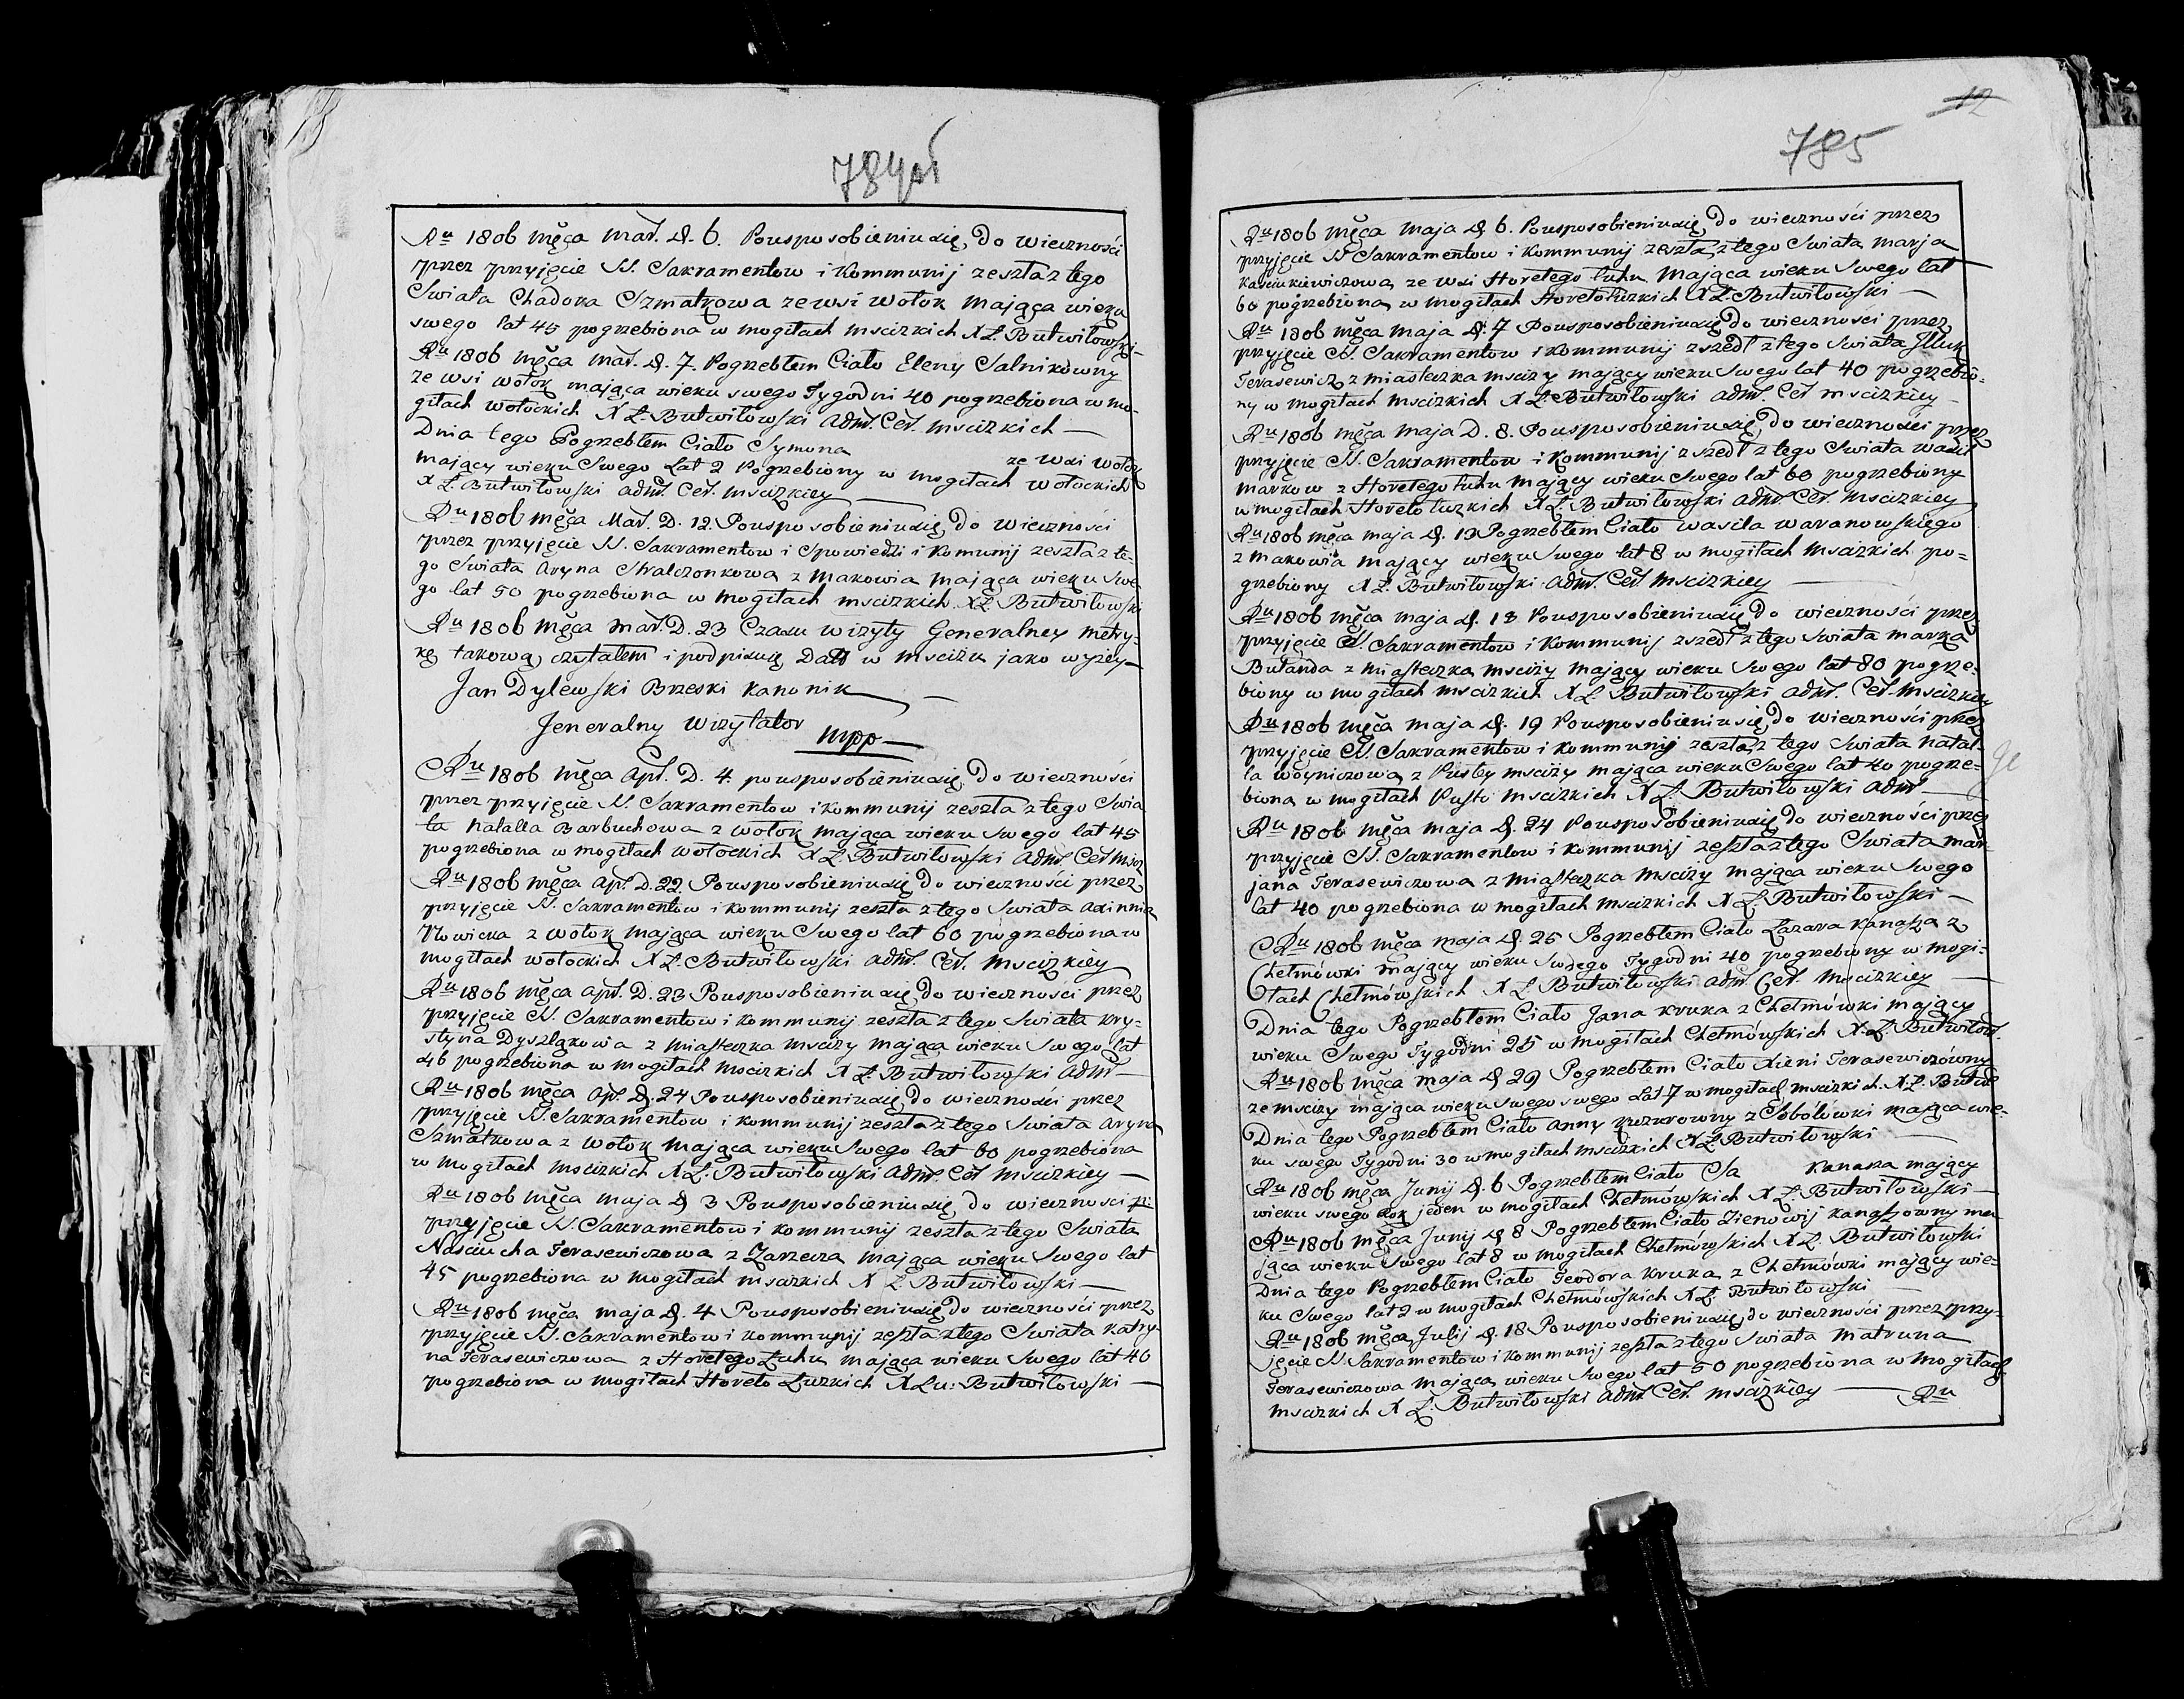 784об
Ru 1806 Mca Mar. D. 6. Pousposobieniu się do wieczności
przez przyjęcie SS. Sakramentow i Kommunij zeszła z tego
Swiata Chadora Szmatkowa ze wsi Wołok mająca wieku
swego lat 45 pogrzebiona w mogiłach Mscizkich X Ł. Butwiłowski
Ru 1806 Mca Mar. D. 7. Pogrzebłem Ciało Eleny Salnikowny
ze wsi Wołok mająca wieku swego Tygodni 40 pogrzebiona w mo-
giłach Wołockich X Ł. Butwiłowski Adm. Cer. Mscizkich
Dnia tego Pogrzebłem Ciało Symona ze Wsi Wołok
mający wieku Swego Lat 2 Pogrzebiony w mogiłach Wołockich
X Ł. Butwiłowski Adm. Cer. Mscizkiey
Ru 1806 Mca Mar. D. 12. Pousposobieniu się do wieczności
przez przyjęcie SS. Sakramentow i Spowiedzi i Komunij zeszła z te-
go Swiata Aryna Stralczonkowa z Makowia mająca wieku Swe-
go lat 50 pogrzebiona w mogiłach Mscizkich X Ł Butwiłowski
Ru 1806 Mca Mar. D. 23 Czasu wizyty Generalney metry-
kę takową czytałem i podpisuię Datt w Mscizu jako wyzey
Jan Dylewski Brzeski Kanonik
Jeneralny Wizytator mpp
Ru 1806 Mca Apr. D. 4. pousposobieniu się do wieczności
przez przyjęcie SS. Sakramentow i Kommunij zeszła z tego Swia
ta Natalla Barbuchowa z Wołok mająca wieku Swego lat 45
pogrzebiona w mogiłach Wołockich X Ł Butwiłowski Adm. Cer Msciz
Ru 1806 Mca Ap. D. 22. Pousposobieniu się do wieczności przez
przyjęcie SS. Sakramentow i Kommunij zeszła z tego Swiata Axinnia
Nowicka z Wołok mająca wieku Swego lat 60 pogrzebiona w
mogiłach Wołockich X Ł. Butwiłowski Adm. Cer. Mscizkiey
Ru 1806 Mca Apr. D. 23 Pousposobieniu się do wieczności przez
przyjęcie SS. Sakramentow i Kommunij zeszła z tego Swiata Kry-
styna Dyszlakowia z Miasteczka Mscizy mająca wieku Swego lat
46 pogrzebiona w mogiłach Mscizkich X Ł. Butwiłowski Adm
Ru 1806 Mca Ap. D. 24 Pousposobieniu się do wieczności przez
przyjęcie SS. Sakramentow i Kommunij zeszła z tego Swiata Aryna
Szmatkowa z Wołok mająca wieku Swego lat 60 pogrzebiona
w mogiłach Mscizkich X Ł. Butwiłowski Adm. Cer Mscizkiey
Ru 1806 Mca Maja D 3 Pousposobieniu się do wieczności
przyjęcie SS Sakramentow i Kommunij zeszła z tego Swiata
Nasciucha Terasewiczowa z Zarzecza mająca wieku Swego lat
45 pogrzebiona w mogiłach Mscizkich X Ł. Butwiłowski
Ru 1806 Mca Maja D. 4 Pousposobieniu się do wieczności przez
przyjęcie SS. Sakramentow i Kommunij zeszła z tego Swiata Katry-
na Terasewiczowa z Horełego Łuhu mająca wieku Swego lat 40
pogrzebiona w mogiłach Horeło Łuzkich X Łu: Butwiłowski
12
785
Ru 1806 Mca Maja D 6. Pousposobieniu się do wieczności przez
przyjęcie SS Sakramentow i Kommunij zeszła z tego Swiata Marja
ze Wsi Horełego Łuhu Mająca wieku Swego lat
60 pogrzebiona w mogiłach Horełołuzkich X Ł. Butwiłowski
Ru 1806 Mca Maja D. 7 Pousposobieniu się do wieczności przez
przyjęcie SS. Sakramentow i Kommunij zszedł z tego Swiata Illuk
Terasewicz z Miasteczka Mscizy mający wieku Swego lat 40 pogrzebio-
ny w mogiłach Mscizkich X Ł Butwiłowski Adm. Cer Mscizkiey
Ru 1806 Mca Maja D. 8. Pousposobieniu się do wieczności przez
przyjęcie SS. Sakramentow i Kommunij zszedł z tego Swiata Wasil
Markow z Horełego Łuhu mający wieku Swego lat 60 pogrzebiony
w mogiłach Horeło łuzkich X Ł. Butwiłowski Adm. Cer. Mscizkiey
Ru 1806 Mca Maja D. Pogrzebłem Ciało Wasila Waranowskiego
z Makowia mający wieku Swego lat 8 w mogiłach Mscizkich po-
grzebiony X Ł. Butwiłowski Adm. Cer Mscizkiey
Ru 1806 Mca Maja D. 13 Pousposobieniu się do wieczności przez
przyjęcie SS. Sakramentow i Kommunij zszedł z tego Swiata Marka
Bułanda z Miasteczka Mscizy mający wieku Swego lat 80 pogrze-
biony w mogiłach Mscizkich X Ł Butwiłowski Adm. Cer. Mscizkiey
Ru 1806 Mca Maja D. 19 Pousposobieniu się do wieczności przez
przyjęcie SS. Sakramentow i Kommunij zeszła z tego Swiata Natal-
la Woyniczowa z Pustey Mscizy mająca wieku Swego lat 40 pogrze-
biona w mogiłach Pusto Mscizkich X Ł. Butwiłowski Adm
Ru 1806 Mca Maja D. 24 Pousposobieniu się do wieczności przez
przyjęcie SS. Sakramentow i Kommunij zeszła z tego Swiata Mar-
jana Terasewiczowa z Miasteczka Mscizy mająca wieku Swego
lat 40 pogrzebiona w mogiłach Mscizkich X Ł. Butwiłowski
Ru 1806 Mca Maja D. 25 Pogrzebłem Ciało Łazara Kanasza z
Chełmówki mający wieku Swego Tygodni 40 pogrzebiony w mogi-
łach Chełmówskich X Ł. Butwiłowski Adm. Cer. Mscizkiey
Dnia tego Pogrzebłem Ciało Jana Kruka z Chełmówki mający
wieku Swego Tygodni 25 w mogiłach Chełmówskich X. Ł. Butwiłow.
Ru 1806 Mca Maja D 29 Pogrzebłem Ciało Xieni Terasewiczówny
ze Mscizy mająca wieku Swego swego Lat 7 w mogiłach Mscizkich. X Ł. Butwił
Dnia tego Pogrzebłem Ciało Anny z Sobolówki mająca wie-
ku swego Tygodni 30 w mogiłach Mscizkich X Ł. Butwiłowski
Ru 1806 Mca Junij D. 6 Pogrzebłem Ciało Sa Kanasza mający
wieku swego Rok jeden w mogiłach Chełmówskich X Ł. Butwiłowski
Ru 1806 Mca Junij D 8 Pogrzebłem Ciało Zienowij Kanaszowny ma
jąca wieku Swego lat 8 w mogiłach Chełmówskich X Ł. Butwiłowski
Dnia tego Pogrzebłem Ciało Teodora Kruka z Chełmówki mający wie-
ku Swego lat 2 w mogiłach Chełmówskich X Ł. Butwiłowski
Ru 1806 Mca Julij D. 18 Pousposobieniu się do wieczności przez przy-
jęcie SS. Sakramentow i Kommunij zeszła z tego Swiata Matruna
Terasewiczowa Mająca wieku Swego lat 50 pogrzebiona w mogiłach
Mscizkich X Ł. Butwiłowski Adm Cer. Mscizkiey Ru